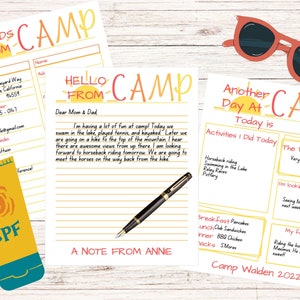 DS
FROM CAMP
California
94559
HELLO
FROM CAMP
Dear Mom & Dad,
I'm having a lot of fun at camp! Today we
swam in the lake, played tennis, and kayaked. Later we
are going on a hike to the top of the mountain. I hear
there are awesome views from up there. I am looking
forward to horseback riding tomorrow. We are going to
meet the horses on the way back from the hike.
A NOTE FROM ANNIE
Another
Day At CAMP
Today is
Activities I Did Today
Horseback riding
Swimming in the Lake
Relay Races
Pottery
Breakfast Pancakes
Lunch Club Sandwiches
Dinner BBQ Chicken
Snacks S'Mores
My f
Riding the
Maximus. He
sweet!
Camp Walden 2022
SPF